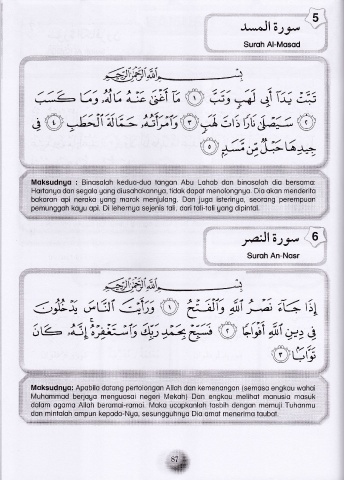 5
سورة المسد
Surah Al-Masad
بِسْمِ اللَّهِ الرَّحْمَٰنِ الرَّحِيمِ
تَبَّتْ يَدَآ أَبِى لَهَبٍ وَتَبَّ ١ مَآ أَغْنَىٰ عَنْهُ مَالُهُۥ وَمَا كَسَبَ
٢ سَيَصْلَىٰ نَارًا ذَاتَ لَهَبٍ ٣ وَٱمْرَأَتُهُۥ حَمَّالَةَ ٱلْحَطَبِ ٤ فِى
جِيدِهَا حَبْلٌ مِّن مَّسَدٍۭ ٥
Maksudnya : Binasalah kedua-dua tangan Abu Lahab dan binasalah dia bersama:
Hartanya dan segala yang diusahakannya, tidak dapat menolongnya. Dia akan menderita
bakaran api neraka yang marak menjulang. Dan juga isterinya, seorang perempuan
pemunggah kayu api. Di lehernya sejenis tali, dari tali-tali yang dipintal.
6
سورة النصر
Surah An-Nasr
بِسْمِ اللَّهِ الرَّحْمَٰنِ الرَّحِيمِ
إِذَا جَآءَ نَصْرُ ٱللَّهِ وَٱلْفَتْحُ ١ وَرَأَيْتَ ٱلنَّاسَ يَدْخُلُونَ
فِى دِينِ ٱللَّهِ أَفْوَاجًا ٢ فَسَبِّحْ بِحَمْدِ رَبِّكَ وَٱسْتَغْفِرْهُ ۚ إِنَّهُۥ كَانَ
تَوَّابًۢا ٣
Maksudnya: Apabila datang pertolongan Allah dan kemenangan (semasa engkau wahai
Muhammad berjaya menguasai negeri Mekah) Dan engkau melihat manusia masuk
dalam agama Allah beramai-ramai. Maka ucapkanlah tasbih dengan memuji Tuhanmu
dan mintalah ampun kepada-Nya, sesungguhnya Dia amat menerima taubat.
87